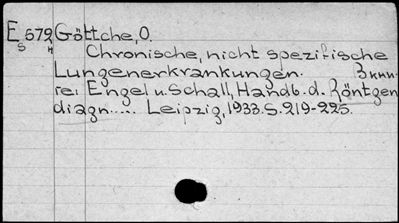 E 572 Göttche, O.
S H
Chronische, nicht spezifische
Lungenerkrankungen. В кни-
ге: Engel u. Schall, Handb. d. Röntgen
diagn..... Leipzig, 1933. S. 219-225.